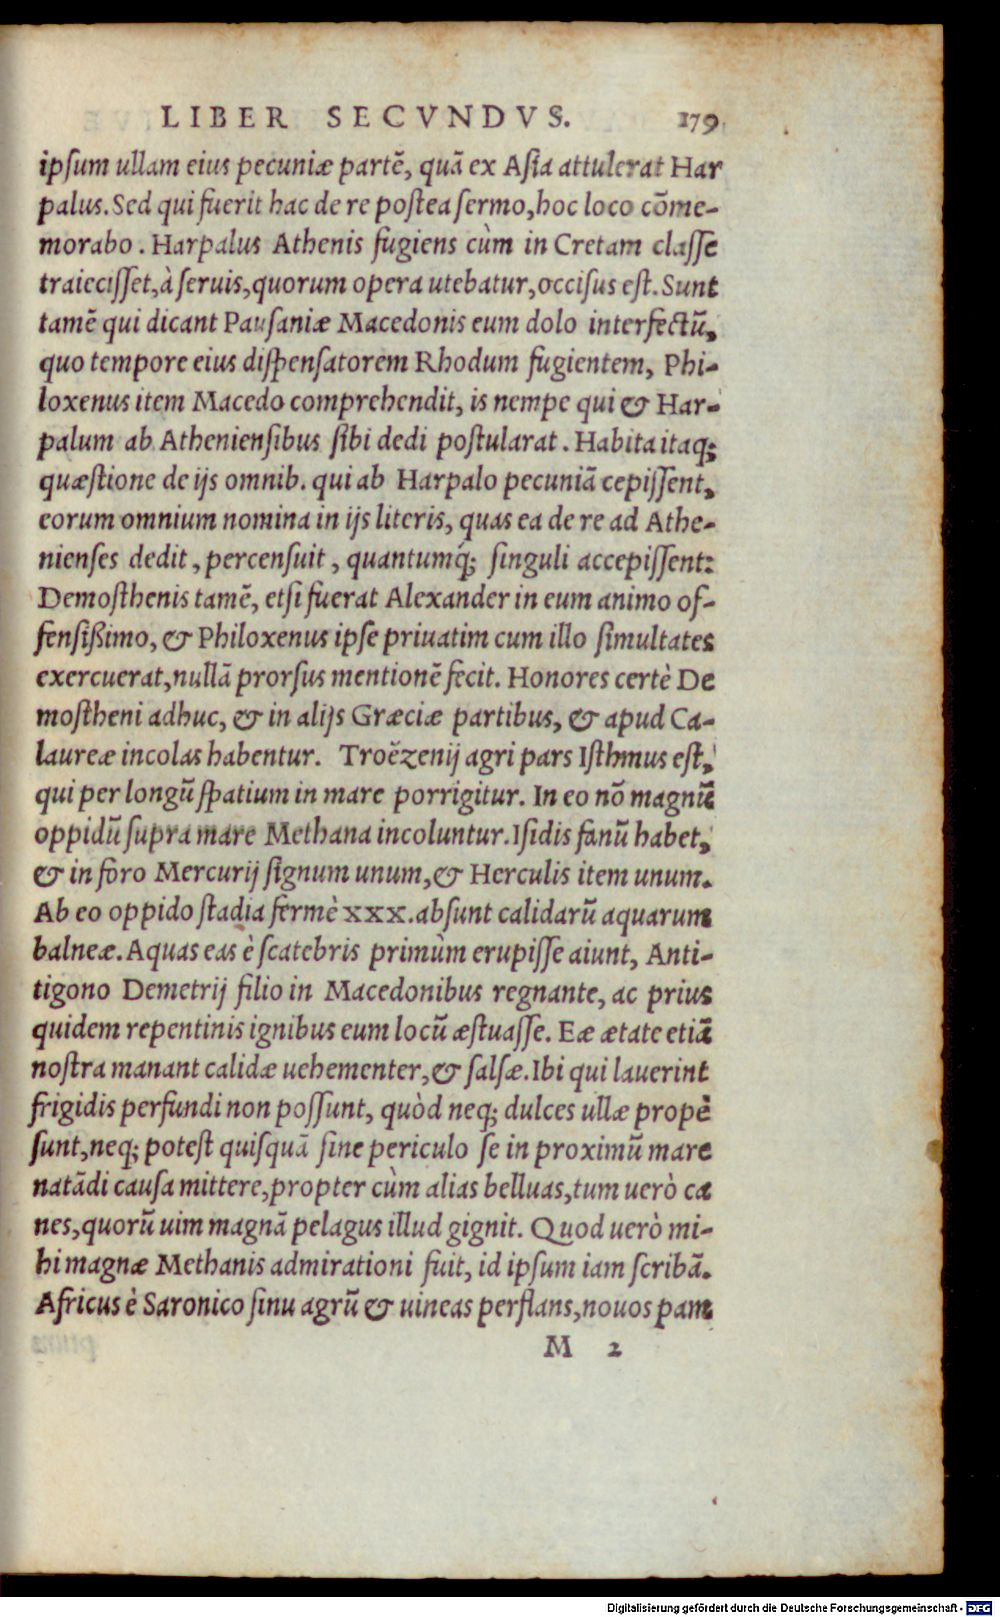 LIBER SECVNDVS. 179
ipſum ullam eius pecuniæ partẽ, quã ex Aſia attulerat Har
palus. Sed qui fuerit hac de re poſtea ſermo, hoc loco cõme-
morabo. Harpalus Athenis fugiens cùm in Cretam claſſe
traieciſſet, à ſeruis, quorum opera utebatur, occiſus eſt. Sunt
tamẽ qui dicant Pauſaniæ Macedonis eum dolo interfectũ,
quo tempore eius diſpenſatorem Rhodum fugientem, Phi-
loxenus item Macedo comprehendit, is nempe qui & Har-
palum ab Athenienſibus ſibi dedi poſtularat. Habita itaq;
quæſtione de ijs omnib. qui ab Harpalo pecuniã cepiſſent,
eorum omnium nomina in ijs literis, quas ea de re ad Athe-
nienſes dedit, percenſuit, quantumq́; ſinguli accepiſſent:
Demoſthenis tamẽ, etſi fuerat Alexander in eum animo of-
fenſißimo, & Philoxenus ipſe priuatim cum illo ſimultates
exercuerat, nullã prorſus mentionẽ fecit. Honores certè De
moſtheni adhuc, & in alijs Græciæ partibus, & apud Ca-
laureæ incolas habentur. Troẽzenij agri pars Iſthmus eſt,
qui per longũ ſpatium in mare porrigitur. In eo nõ magnũ
oppidũ ſupra mare Methana incoluntur. Iſidis fanũ habet,
& in foro Mercurij ſignum unum, & Herculis item unum.
Ab eo oppido ſtadia fermè xxx. abſunt calidarũ aquarum
balneæ. Aquas eas è ſcatebris primùm erupiſſe aiunt, Anti-
tigono Demetrij filio in Macedonibus regnante, ac prius
quidem repentinis ignibus eum locũ æſtuaſſe. Eæ ætate etiã
noſtra manant calidæ uehementer, & ſalſæ. Ibi qui lauerint
frigidis perfundi non poſſunt, quòd neq; dulces ullæ propè
ſunt, neq; poteſt quiſquã ſine periculo ſe in proximũ mare
natãdi cauſa mittere, propter cùm alias belluas, tum uerò ca
nes, quorũ uim magnã pelagus illud gignit. Quod uerò mi-
hi magnæ Methanis admirationi fuit, id ipſum iam ſcribã.
Africus è Saronico ſinu agrũ & uineas perflans, nouos pam
M 2
Digitalisierung gefördert durch die Deutsche Forschungsgemeinschaft - DFG